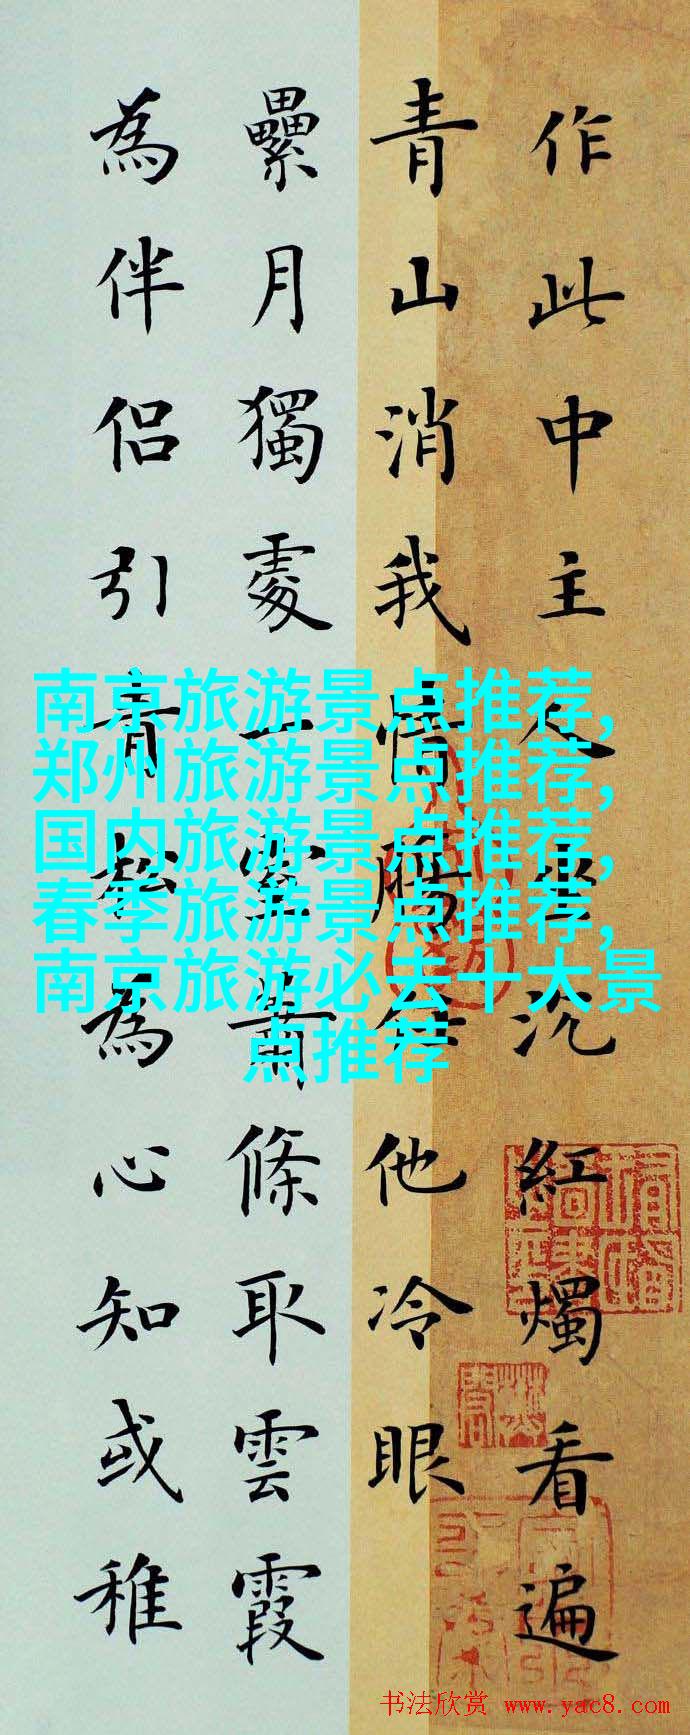 作此中主人坐沉紅燭看遍
青山消我情懷任他冷眼
纍月獨處一室蕭條取雲霞
為伴侶引青松為心知或稚
南京旅游景点推荐,
郑州旅游景点推荐,
国内旅游景点推荐,
春季旅游景点推荐,
南京旅游必去十大景
点推荐
书法欣赏 www.yac8.com